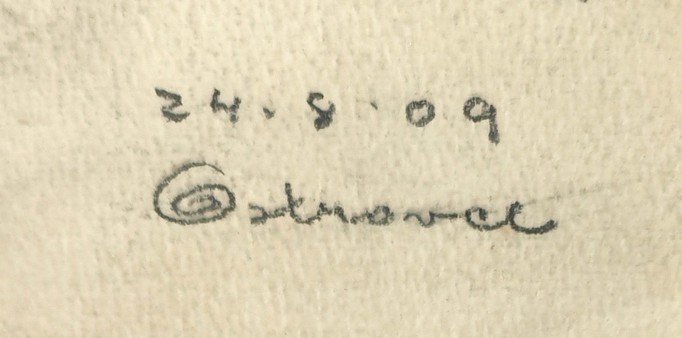 24.8.09
Ostrovce